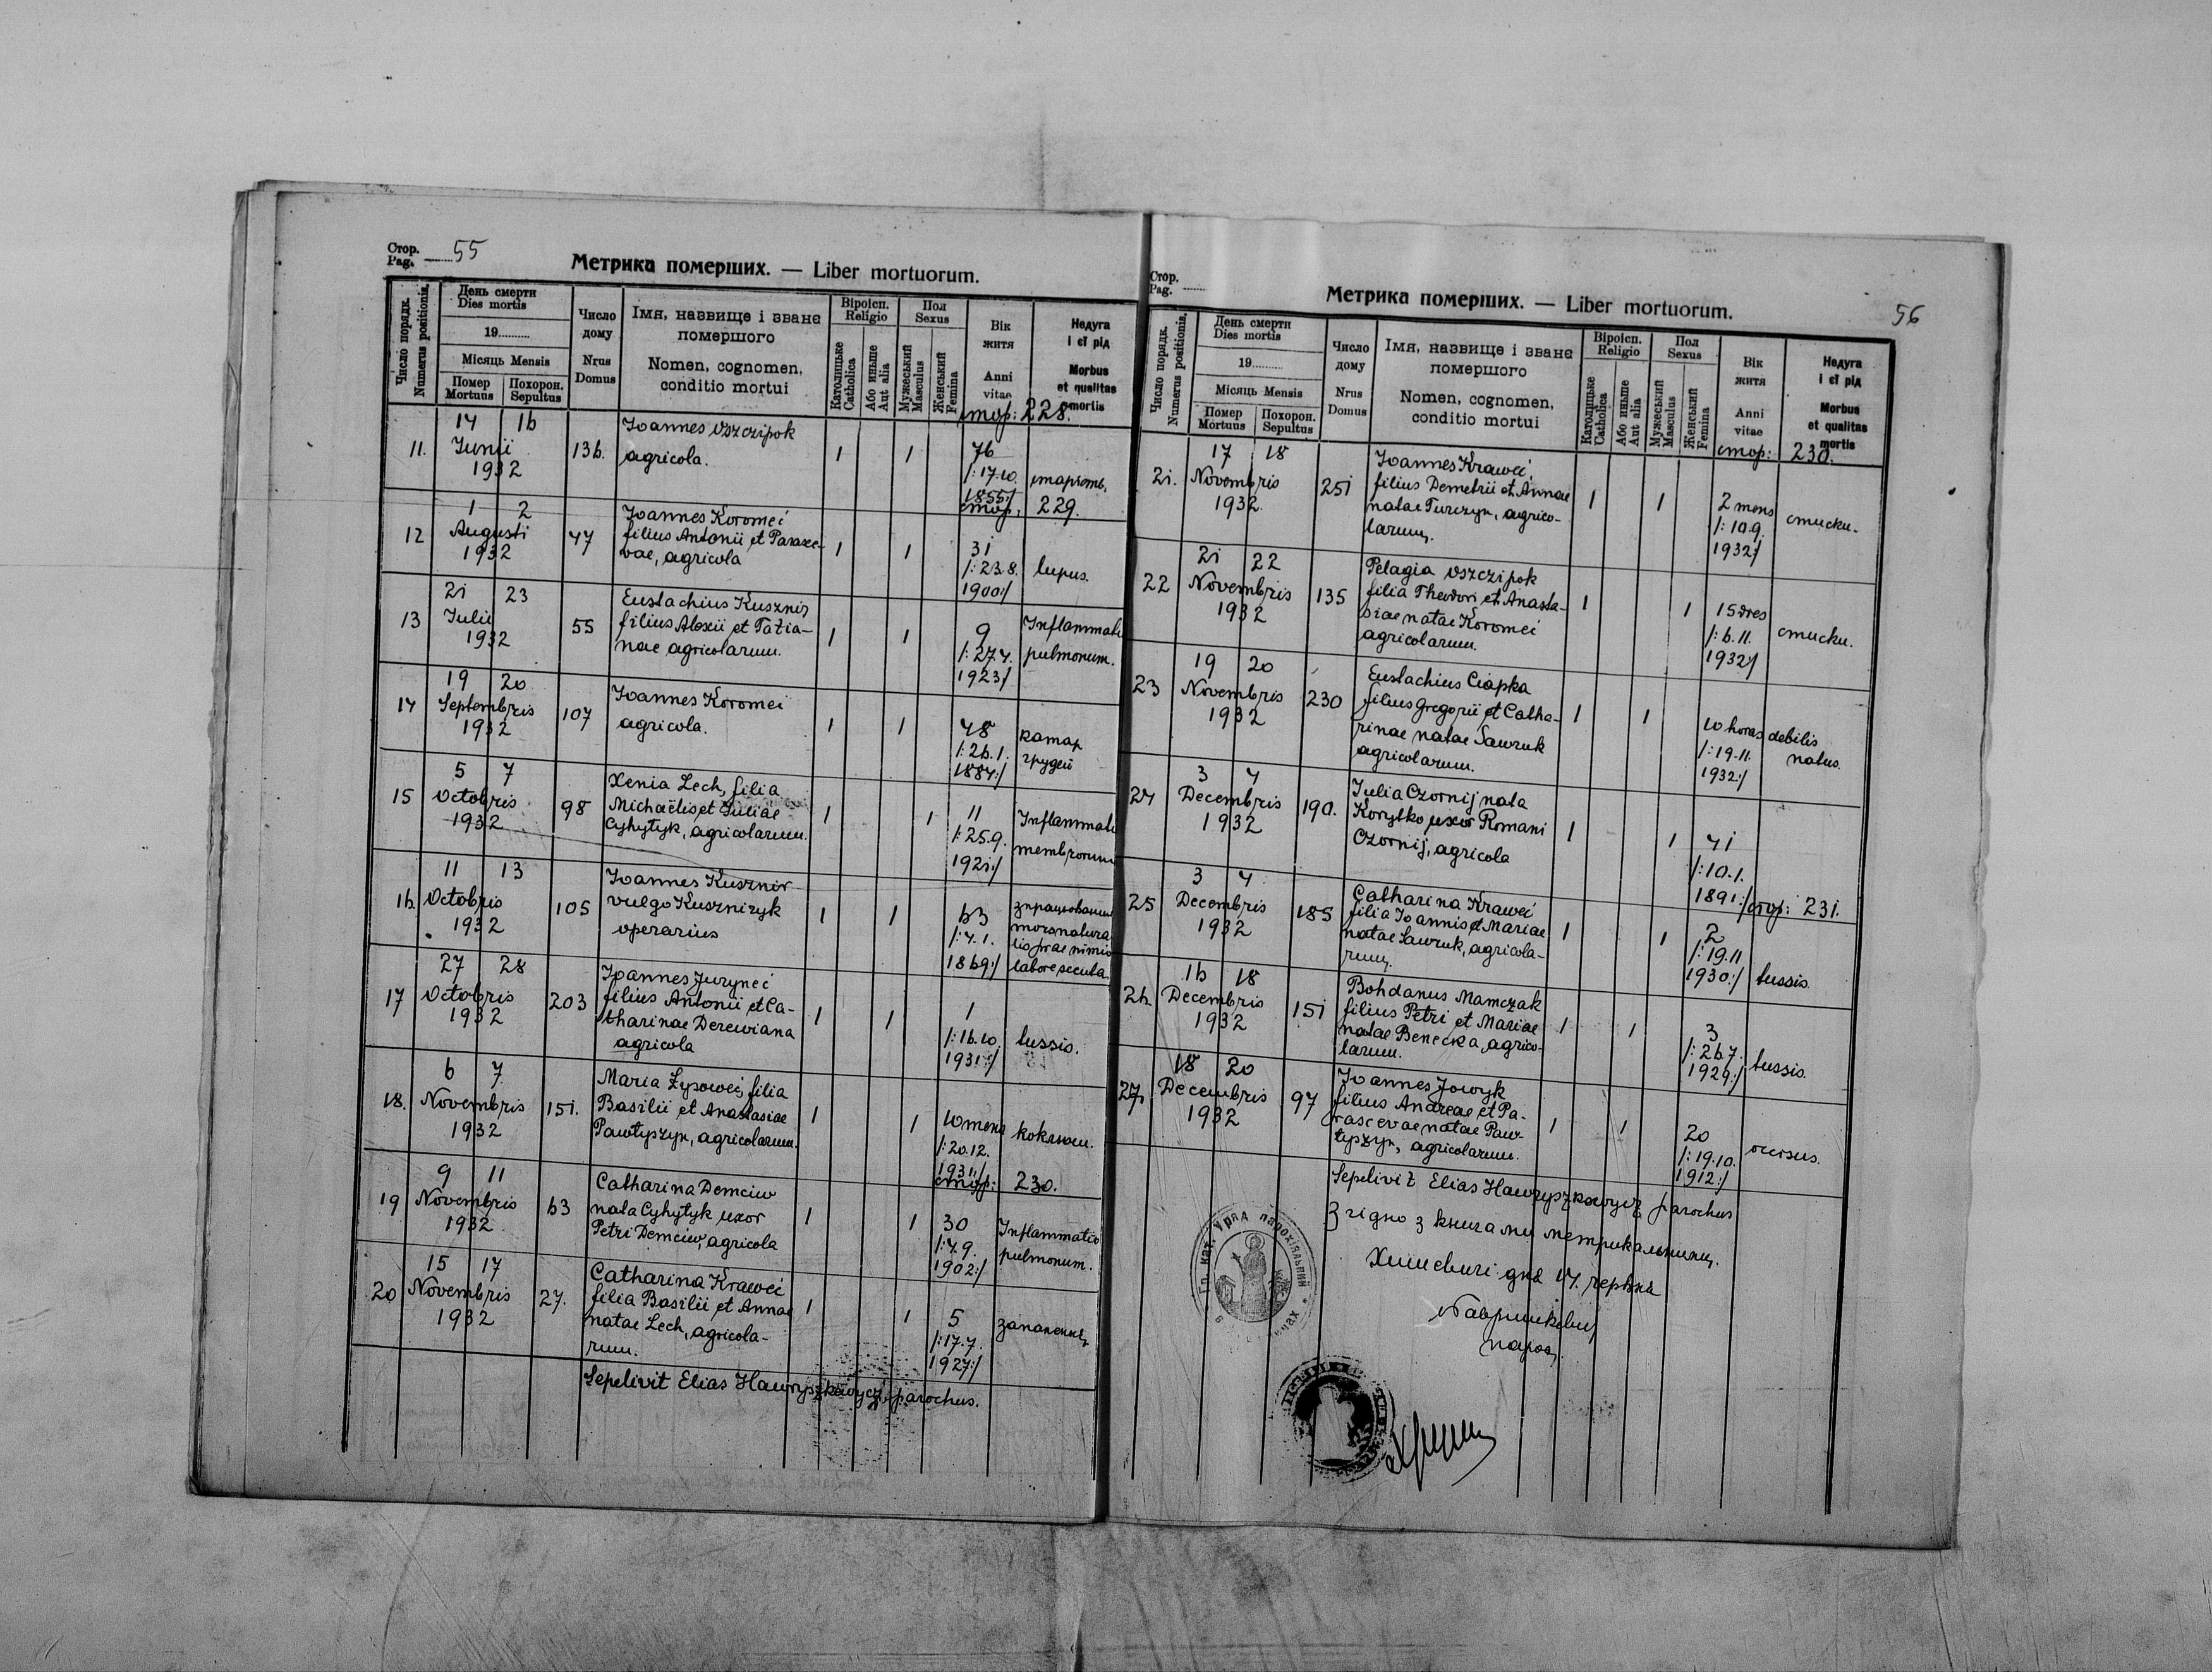 Стор. 55
Pag.
Метрика померших. — Liber mortuorum.
Число порядк. Numerus positionis.
День смерти
Dies mortis
19
Місяць Mensis
Помер Mortuus
Похорон. Sepultus
Число дому
Nrus Domus
Імя, назвище і званє
померщого
Nomen, cognomen,
conditio mortui
Віроісп.
Religio
Католицьке Catholica
Або иньше Aut alia
Пол
Sexus
Мужеський Masculus
Женський Femina
Вік
житя
Anni
vitae
Недуга
і єї рід
Morbus
et qualitas
mortis
стор: 228.
11. 14 16 Junii 1932 136. Joannes Oszczipok
agricola. 1 1 76
/:17.10.
1855:/
старість.
стор. 229.
12 1 2 Augusti 1932 47 Joannes Koromei
filius Antonii et Parasce-
vae, agricola 1 1 31
/:23.8.
1900:/
lupus.
13 21 23 Julii 1932 55 Eustachius Kusznir
filius Alexii et Tatia-
nae agricolarum. 1 1 9
/:27.4.
1923:/
Inflammati
pulmonum.
14 19 20 Septembris 1932 107 Joannes Koromei
agricola. 1 1 48
/:26.1.
1884:/
катар
грудей
15 5 7 Octobris 1932 98 Xenia Lech, filia
Michaëlis et Juliae
Cyhytyk, agricolarum. 1 1 11
/:25.9.
1921:/
Inflammati
membrorum
16. 11 13 Octobris 1932 105 Joannes Kusznir
vulgo Kusznizyk
operarius 1 1 63
/:7.1.
1869:/
mors natura
lis prae nimio
labore secuta
17 27 28 Octobris 1932 203 Joannes Juryneć
filius Antonii et Ca-
tharinae Derewiana
agricola 1 1 1
/:16.10.
1931:/
tussis.
18. 6 7 Novembris 1932 151. Maria Łysoweć, filia
Basilii et Anastasiae
Pawłyszyn, agricolarum. 1 1 10 mens
/:20.12.
1931:/
коклюш.
стор: 230.
19 9 11 Novembris 1932 63 Catharina Demciw
nata Cyhytyk uxor
Petri Demciw, agricola 1 1 30
/:7.9.
1902:/
Inflammatio
pulmonum.
20 15 17 Novembris 1932 27. Catharina Kraweć
filia Basilii et Annae
natae Lech, agricola-
rum. 1 1 5
/:17.7.
1927:/
запаленнє
Sepelivit Elias Hawryszkewycz, parochus.
Стор.
Pag.
56
Метрика померших. — Liber mortuorum.
Число порядк. Numerus positionis.
День смерти
Dies mortis
19
Місяць Mensis
Помер Mortuus
Похорон. Sepultus
Число дому
Nrus Domus
Імя, назвище і званє
померщого
Nomen, cognomen,
conditio mortui
Віроісп.
Religio
Католицьке Catholica
Або иньше Aut alia
Пол
Sexus
Мужеський Masculus
Женський Femina
Вік
житя
Anni
vitae
Недуга
і єї рід
Morbus
et qualitas
mortis
стор: 230.
21. 17 18 Novembris 1932. 251 Joannes Kraweć,
filius Demetrii et Annae
natae Turczyn, agrico-
larum. 1 1 2 mens
/:10.9.
1932:/
стиски.
22 21 22 Novembris 1932 135 Pelagia Oszczipok
filia Theodori et Anasta-
siae natae Koromei
agricolarum. 1 1 15 dies
/:6.11.
1932:/
стиски.
23 19 20 Novembris 1932 230 Eustachius Ciapka
filius Gregorii et Catha-
rinae natae Sawruk
agricolarum. 1 1 10 horas
/:19.11.
1932:/
debilis
natus.
24 3 4 Decembris 1932 190. Julia Czornij nata
Korytko uxor Romani
Czornij, agricola 1 1 41
/:10.1.
1891:/
стор: 231.
25 3 4 Decembris 1932 185 Catharina Kraweć
filia Joannis et Mariae
natae Sawruk, agricola-
rum. 1 1 2
/:19.11
1930:/
tussis.
26. 16 18 Decembris 1932 151 Bohdanus Mamczak
filius Petri et Mariae
natae Benecka, agrico-
larum. 1 1 3
/:26.7.
1929:/
tussis.
27. 18 20 Decembris 1932 97 Joannes Jowyk
filius Andreae et Pa-
rascevae natae Paw-
łyszyn, agricolarum. 1 1 20
/:19.10.
1912:/
occisus.
Sepelivit Elias Hawryszkewycz parochus
Згідно з книгами метрикальними.
Хишевичі дня 14. червня
Гавришкевич
парох.
Гр. кат. Уряд парохіяльний